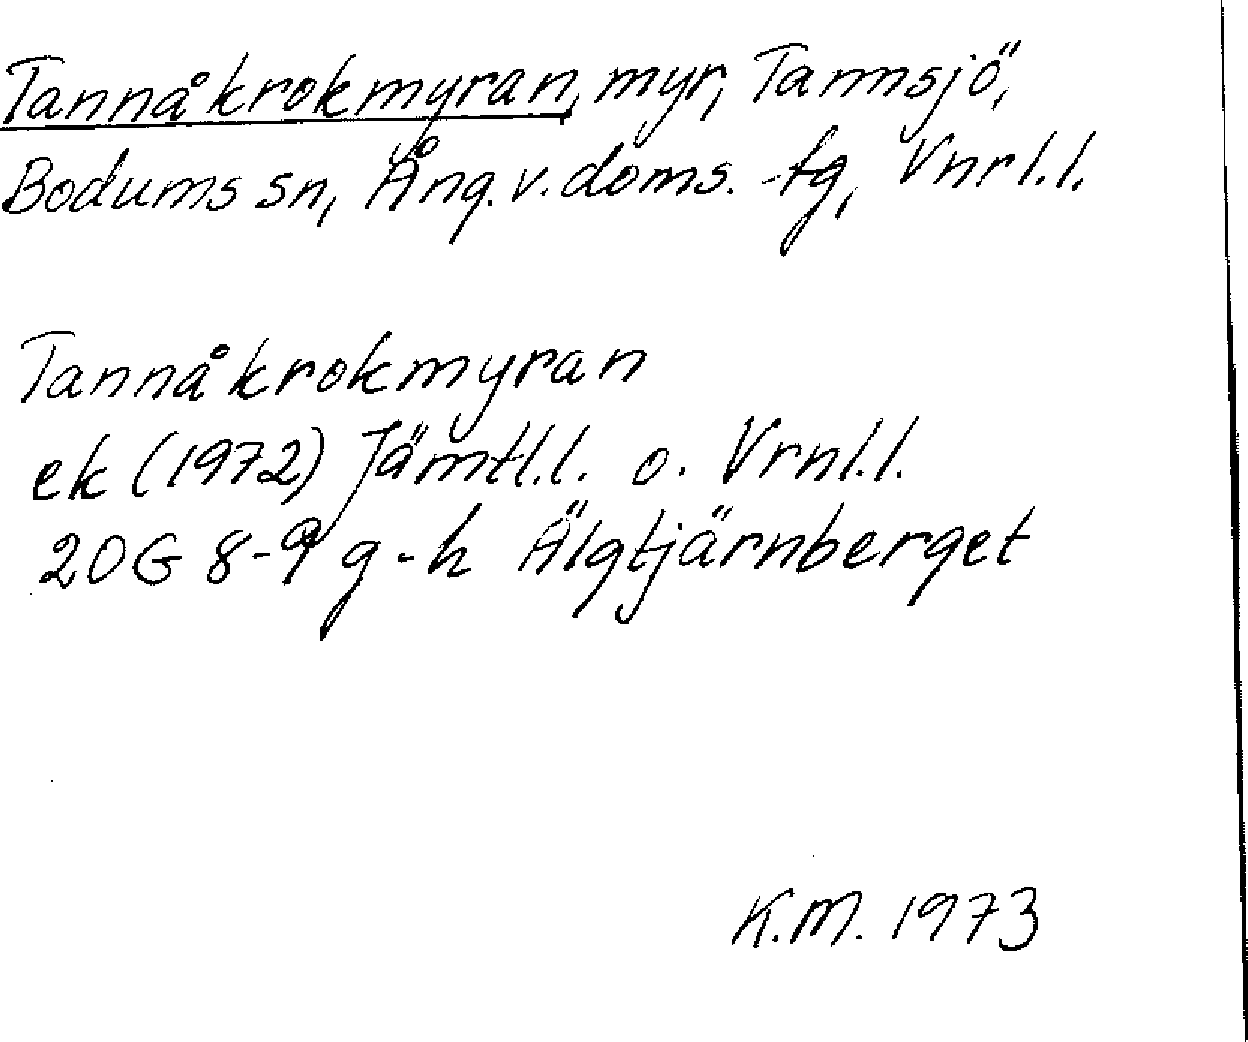 Tannåkrokmyran, myr, Tannsjö,
Bodums sn, Ång. v. doms. -fg, Vnrl.l.
Tannåkrokmyran
ek (1972) Jämtl.l. o. Vrnl.l.
20G 8-9 g-h Älgtjärnberget
K.M. 1973